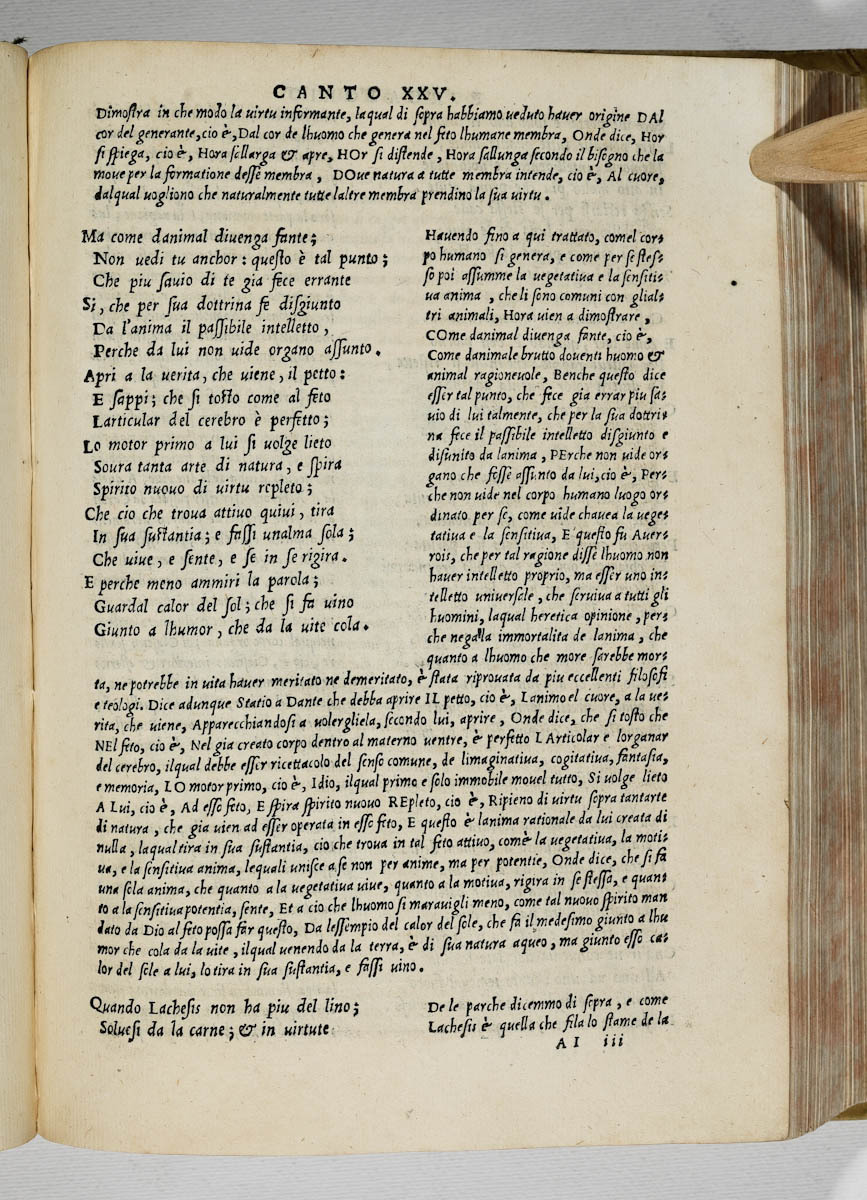 CANTO XXV.
Dimostra in che modo la uirtu informante, laqual di sopra habbiamo ueduto hauer origine DAl
cor del generante, cio è, Dal cor de lhuomo che genera nel feto lhumane membra, Onde dice, Hor
si spiega, cio è, Hora sallarga & apre, HOr si distende, Hora sallunga secondo il bisogno che la
moue per la formatione desse membra, DOue natura a tutte membra intende, cio è, Al cuore,
dalqual uogliono che naturalmente tutte laltre membra prendino la sua uirtu.
Ma come danimal diuenga fante;
Non uedi tu anchor: questo è tal punto;
Che piu sauio di te gia fece errante
Si, che per sua dottrina fe disgiunto
Da l'anima il passibile intelletto,
Perche da lui non uide organo assunto.
Apri a la uerita, che uiene, il petto:
E sappi; che si tosto come al feto
Larticular del cerebro è perfetto;
Lo motor primo a lui si uolge lieto
Soura tanta arte di natura, e spira
Spirito nuouo di uirtu repleto;
Che cio che troua attiuo quiui, tira
In sua sustantia; e fassi unalma sola;
Che uiue, e sente, e se in se rigira.
E perche meno ammiri la parola;
Guardal calor del sol; che si fa uino
Giunto a lhumor, che da la uite cola.
Hauendo fino a qui trattato, comel cor=
po humano si genera, e come per se stes=
so poi assumme la uegetatiua e la sensiti=
ua anima, che li sono comuni con glial=
tri animali, Hora uien a dimostrare,
COme danimal diuenga fante, cio è,
Come danimale brutto douenti huomo &
animal ragioneuole, Benche questo dice
esser tal punto, che fece gia errar piu sa=
uio di lui talmente, che per la sua dottri=
na fece il passibile intelletto disgiunto e
disunito da lanima, PErche non uide or=
gano che fesse assunto da lui, cio è, Per=
che non uide nel corpo humano luogo or=
dinato per se, come uide chauea la uege=
tatiua e la sensitiua, E questo fu Auer=
rois, che per tal ragione disse lhuomo non
hauer intelletto proprio, ma esser uno in=
telletto uniuersale, che seruiua a tutti gli
huomini, laqual heretica opinione, per=
che nega la immortalita de lanima, che
quanto a lhuomo che more sarebbe mor=
ta, ne potrebbe in uita hauer meritato ne demeritato, è stata riprouata da piu eccellenti filosofi
e teologi. Dice adunque Statio a Dante che debba aprire IL petto, cio è, Lanimo el cuore, a la ue=
rita, che uiene, Apparecchiandosi a uolergliela, secondo lui, aprire, Onde dice, che si tosto che
NEl feto, cio è, Nel gia creato corpo dentro al materno uentre, è perfetto LArticolar e lorganar
del cerebro, ilqual debbe esser ricettacolo del senso comune, de limaginatiua, cogitatiua, fantasia,
e memoria, LO motor primo, cio è, Idio, ilqual primo e solo immobile mouel tutto, Si uolge lieto
A Lui, cio è, Ad esso feto, E spira spirito nuouo REpleto, cio è, Ripieno di uirtu sopra tantarte
di natura, che gia uien ad esser operata in esso feto, E questo è lanima rationale da lui creata di
nulla, laqual tira in sua sustantia, cio che troua in tal feto attiuo, comè la uegetatiua, la moti=
ua, e la sensitiua anima, lequali unisce a se non per anime, ma per potentie, Onde dice, che si fa
una sola anima, che quanto a la uegetatiua uiue, quanto a la motiua, rigira in se stessa, e quan=
to a la sensitiua potentia, sente, Et a cio che lhuomo si marauigli meno, come tal nuouo spirito man
dato da Dio al feto possa far questo, Da lessempio del calor del sole, che fa il medesimo giunto a lhu
mor che cola da la uite, ilqual uenendo da la terra, è di sua natura aqueo, ma giunto esso ca=
lor del sole a lui, lo tira in sua sustantia, e fassi uino.
Quando Lachesis non ha piu del lino;
Soluesi da la carne; & in uirtute
De le parche dicemmo di sopra, e come
Lachesis è quella che fila lo stame de la
AI iii